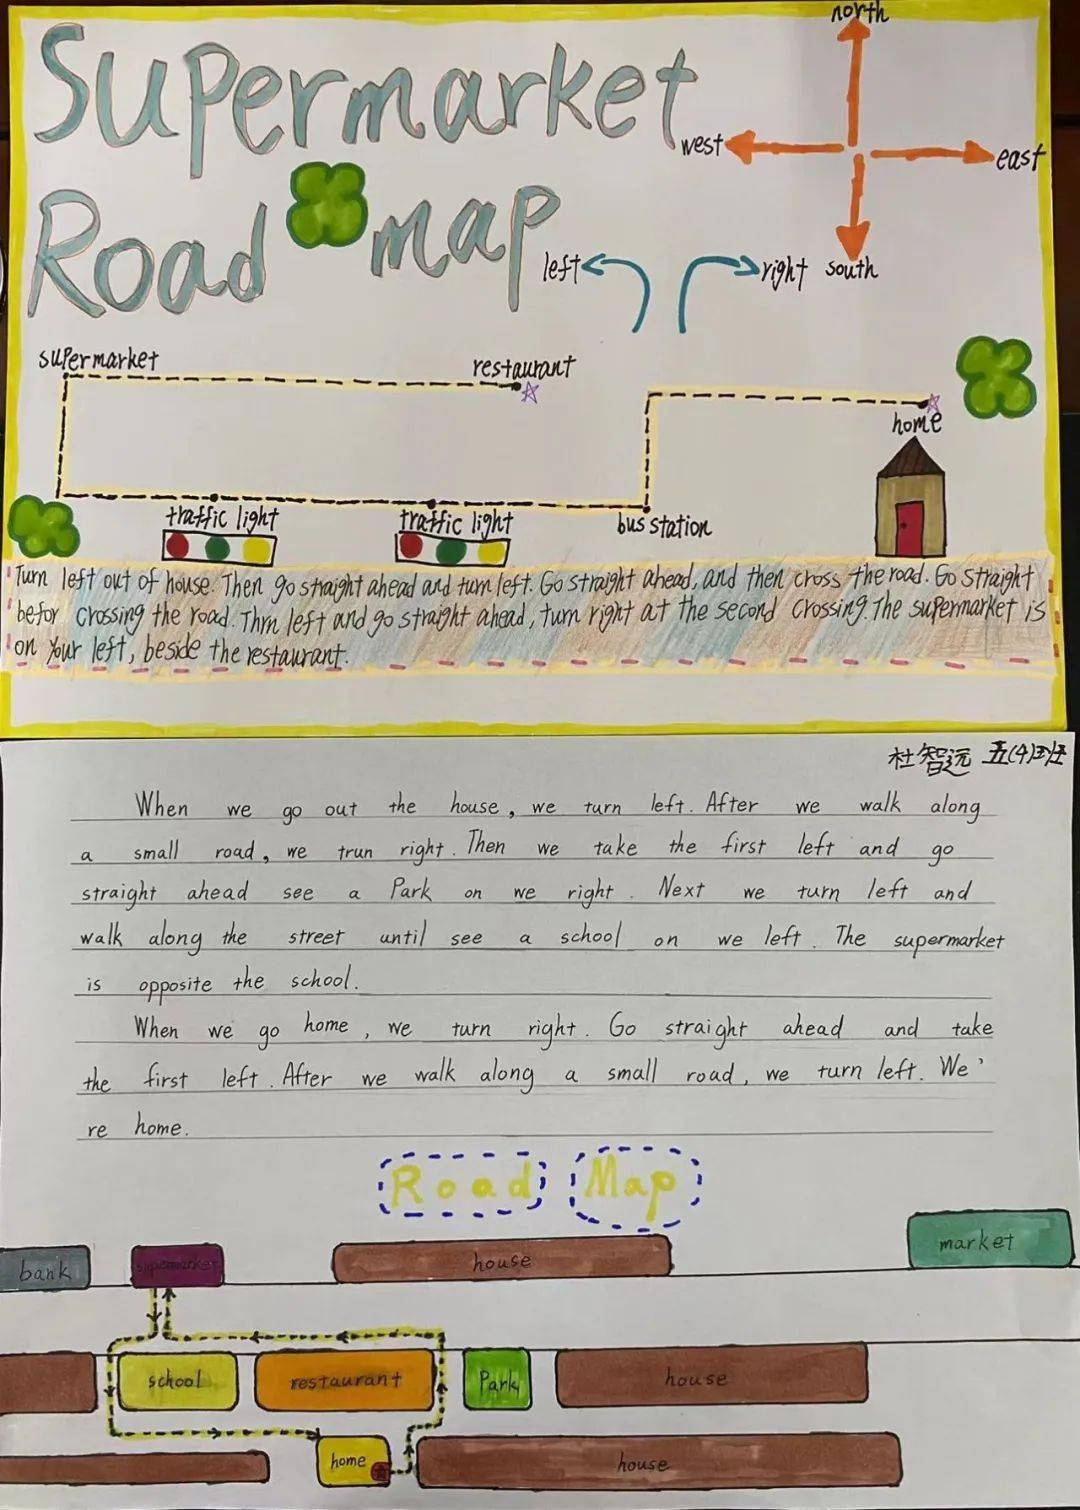 Supermarket
Road map
north
west
east
south
left
right
supermarket
restaurant
home
traffic light
traffic light
bus station
Turn left out of house. Then go straight ahead and turn left. Go straight ahead, and then cross the road. Go straight
befor crossing the road. Thrn left and go straight ahead, turn right at the second crossing. The supermarket is
on your left, beside the restaurant.
杜智远 五(4)班
When we go out the house, we turn left. After we walk along
a small road, we trun right. Then we take the first left and go
straight ahead see a Park on we right. Next we turn left and
walk along the street until see a school on we left. The supermarket
is opposite the school.
When we go home, we turn right. Go straight ahead and take
the first left. After we walk along a small road, we turn left. We'
re home.
Road Map
bank
supermarket
house
market
school
restaurant
Park
house
home
house